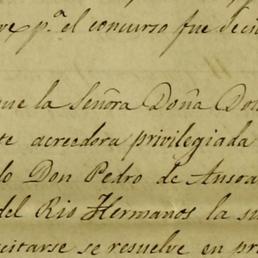 ve p.ª el concurso fue deci
que la Señora Doña Do
te acreedora privilegiada
do Don Pedro de Ansoa
del Rio Hermanos la su
citarse se resuelve en pr